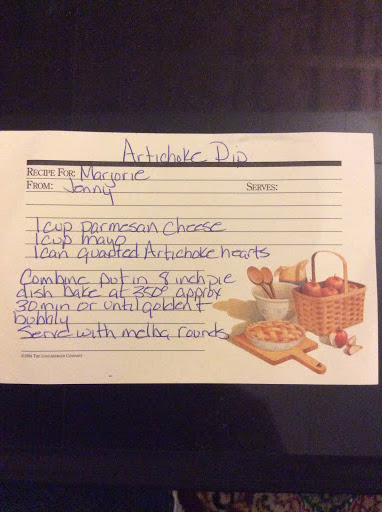 Artichoke Dip
RECIPE FOR: Marjorie
FROM: Jenny SERVES:
1 cup parmesan cheese
1 cup mayo
1 can quarted Artichoke hearts
Combine Put in 8 inch pie
dish bake at 350° approx
30 min or until golden +
bubbly
Serve with melba rounds